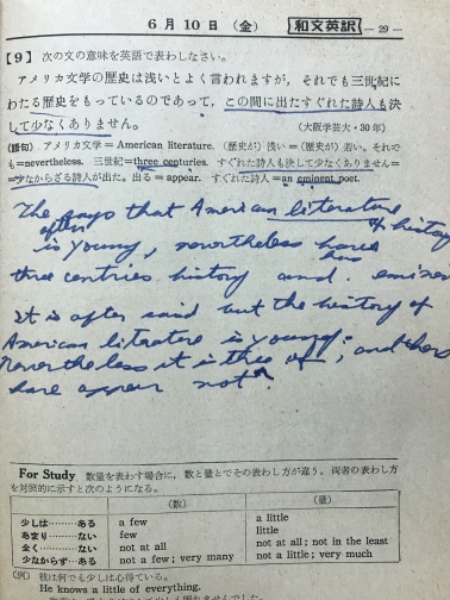 6月10日 (金) 【和文英訳】 — 29 —
【9】 次の文の意味を英語で表わしなさい。
アメリカ文学の歴史は浅いとよく言われますが, それでも三世紀に
わたる歴史をもっているのであって, この間に出たすぐれた詩人も決
して少なくありません。 (大阪学芸大・30年)
(語句) アメリカ文学=American literature. (歴史が) 浅い=(歴史が) 若い。それで
も=nevertheless. 三世紀=three centuries. すぐれた詩人も決して少なくありません=
=少なからざる詩人が出た。出る=appear. すぐれた詩人=an eminent poet.
The says that American literature of history
often
is young, nevertheless have
has
three centries history and. eminen
it is often said but the history of
American literature is young; and
Nevertheless it is three of
have appear not
For Study 数量を表わす場合に, 数と量とでその表わし方が違う。両者の表わし方
を対照的に示すと次のようになる。
(数) (量)
少しは………ある a few a little
あまり………ない few little
全く…………ない not at all not at all; not in the least
少なからず…ある not a few; very many not a little; very much
(例) 彼は何でも少しは心得ている。
He knows a little of everything.